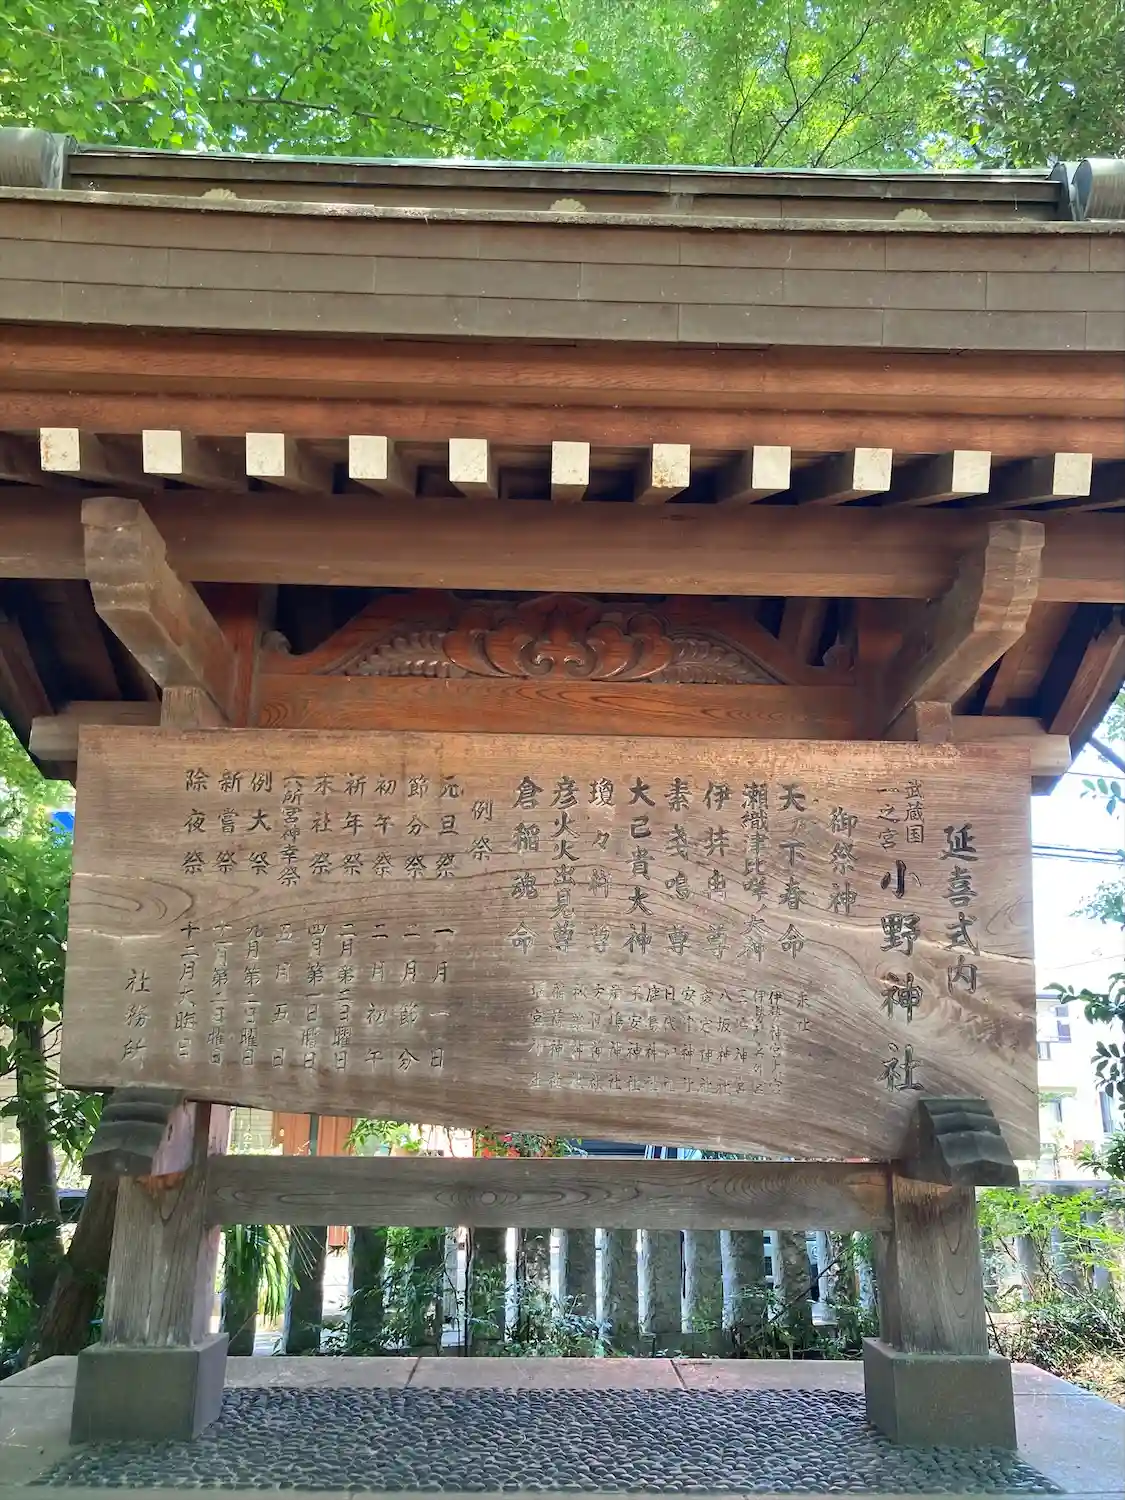 延喜式内
武蔵国
一之宮
小野神社
御祭神
天乃下春命
瀬織津比咩ノ大神
伊弉冉尊
素戔嗚尊
大己貴大神
瓊々杵尊
彦火火出見尊
倉稲魂命
末社
三島神社
八坂神社
子安神社
稲荷神社
例祭
元旦祭 一月一日
節分祭 二月節分
初午祭 二月初午
祈年祭 二月第三日曜日
末社祭 四月第一日曜日
六所宮神幸祭 五月五日
例大祭 九月第二日曜日
新嘗祭 十一月第二日曜日
除夜祭 十二月大晦日
社務所